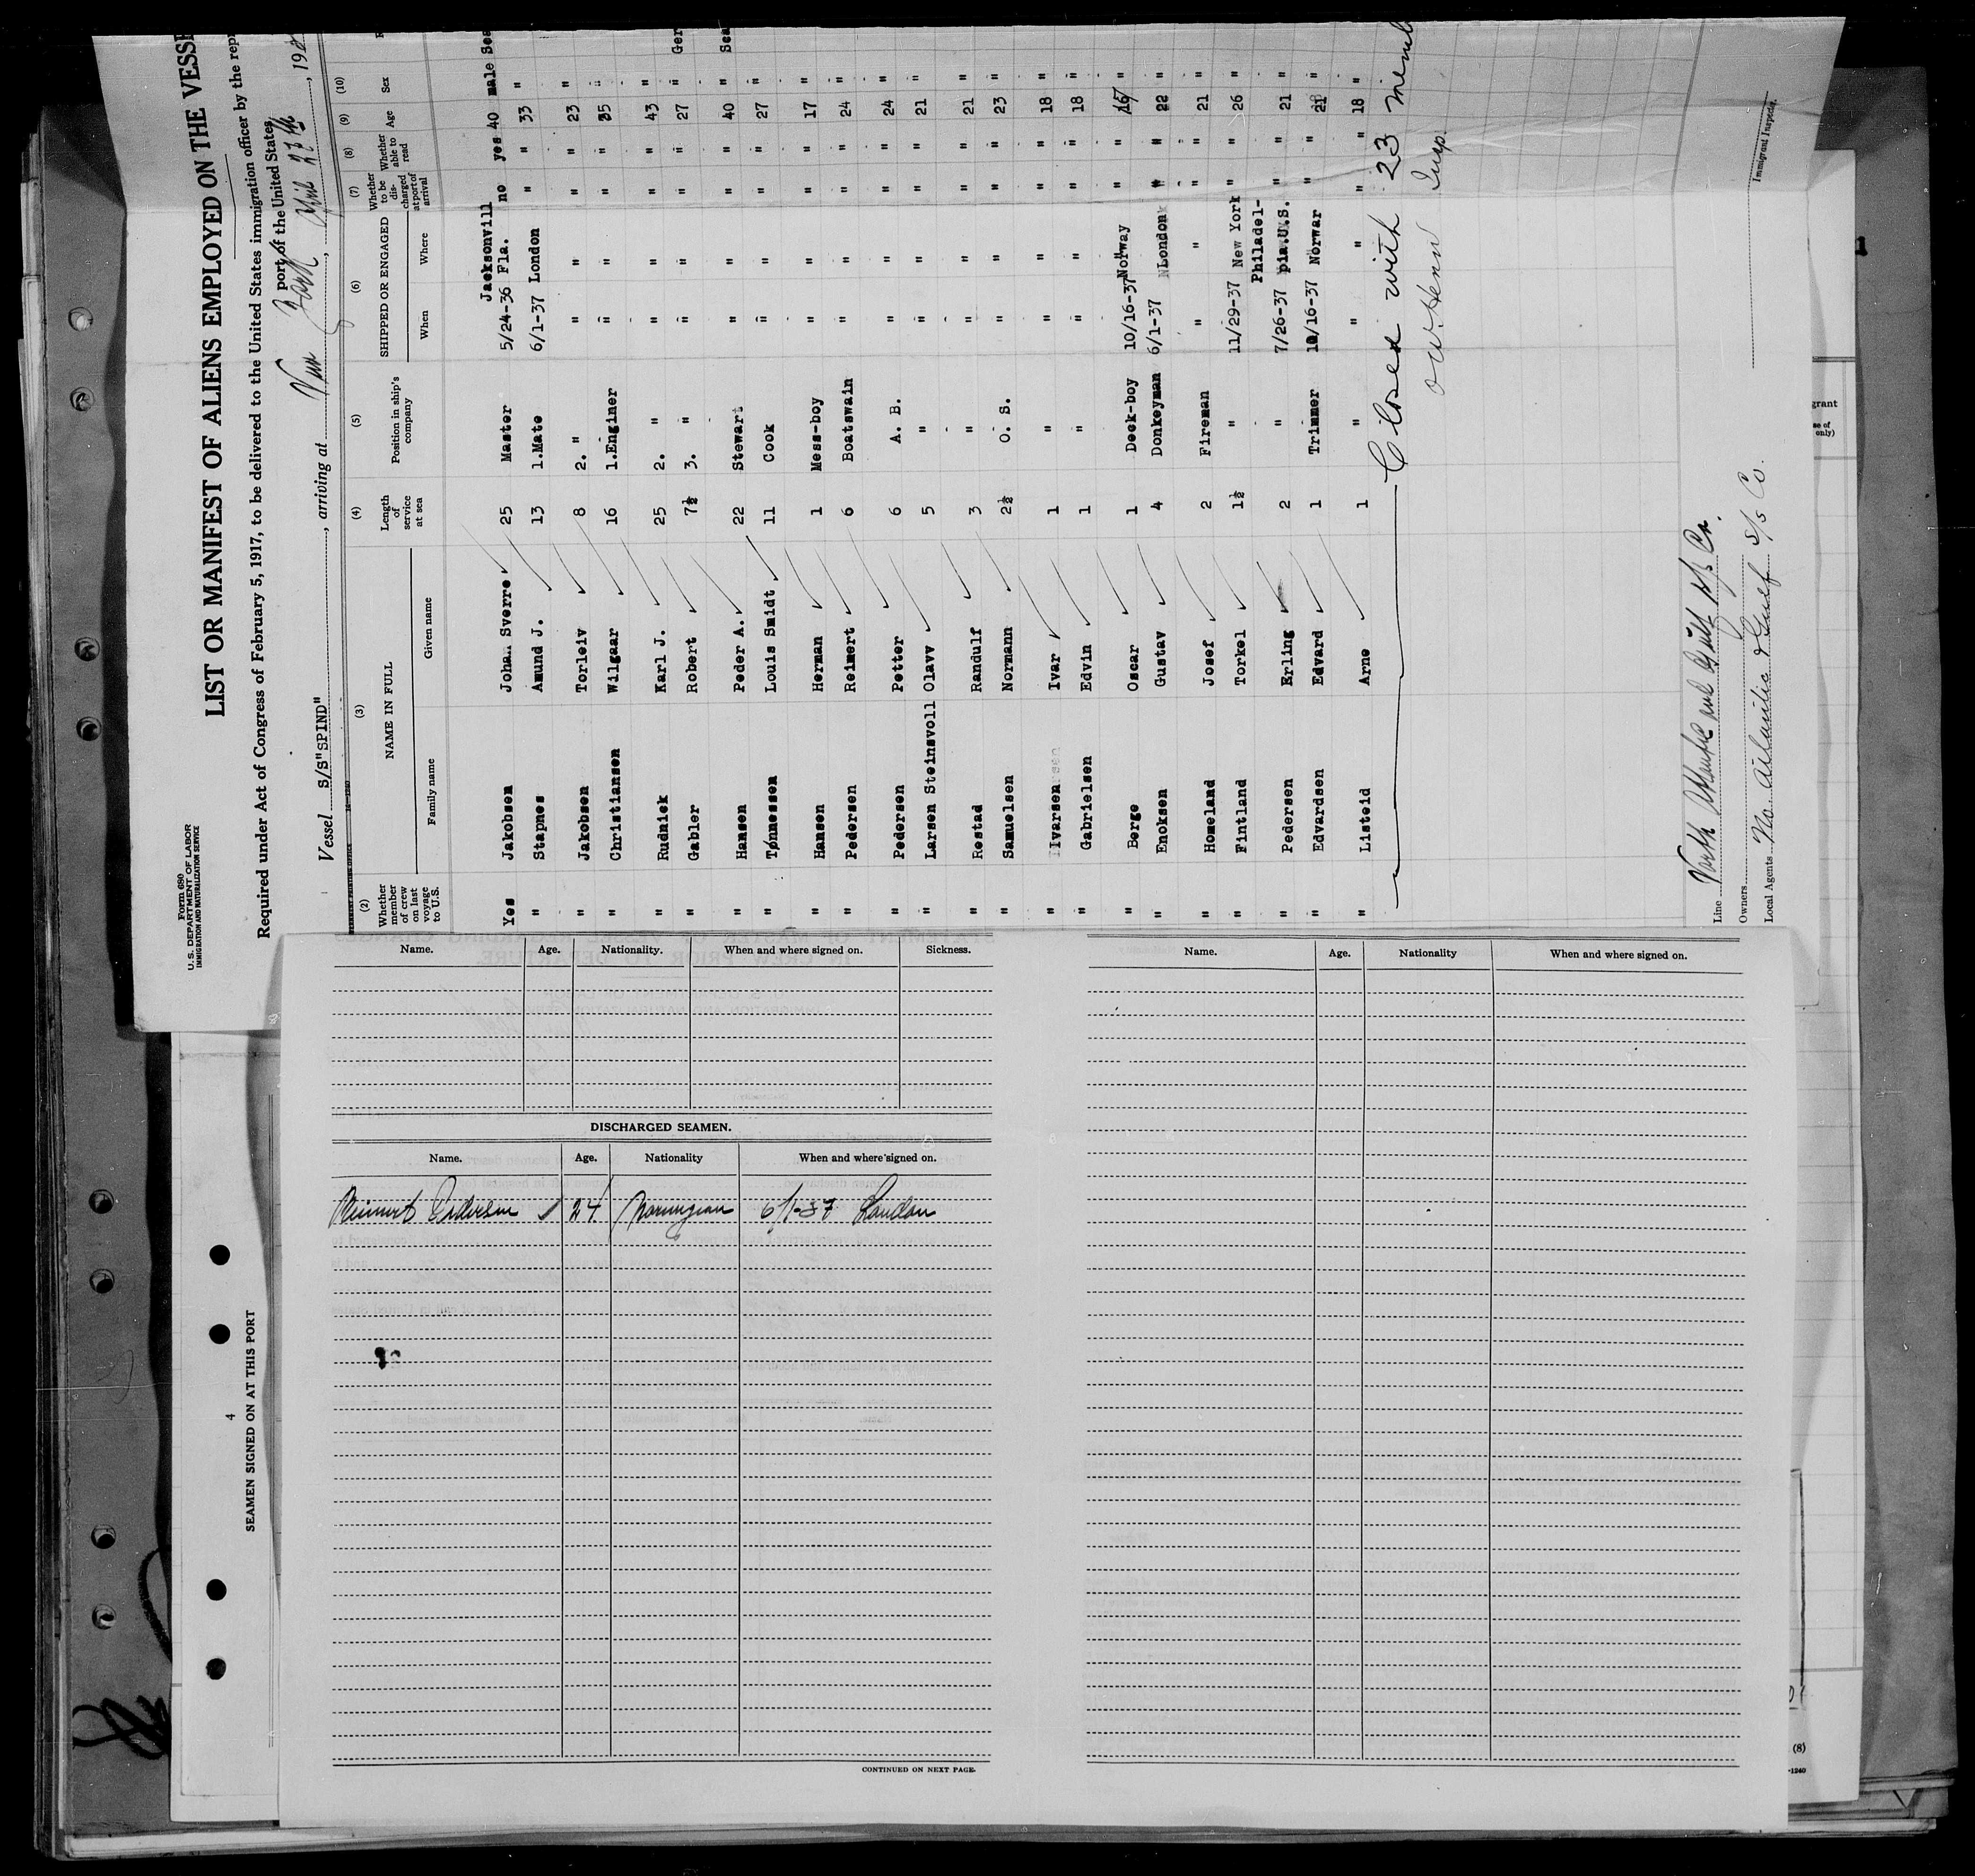 Form 680
U. S. DEPARTMENT OF LABOR
IMMIGRATION AND NATURALIZATION SERVICE
LIST OR MANIFEST OF ALIENS EMPLOYED ON THE VESSE
Required under Act of Congress of February 5, 1917, to be delivered to the United States immigration officer by the repr
port of the United States
Vessel S/S"SPIND", arriving at New York, April 27th, 193
(2) (3) (4) (5) (6) (7) (8) (9) (10)
Whether member of crew on last voyage to U.S. NAME IN FULL Family name Given name Length of service at sea Position in ship's company SHIPPED OR ENGAGED When Where Whether to be discharged at port of arrival Whether able to read Age Sex
Jacksonvill
Yes Jakobsen Johan Sverre 25 Master 5/24-36 Fla. no yes 40 male Sca
" Stapnes Amund J. 13 1.Mate 6/1-37 London " " 33 "
" Jakobsen Torleiv 8 2. " " " " " 23 "
" Christiansen Wilgaar 16 1.Enginer " " " " 35 "
" Rudnick Karl J. 25 2. " " " " " 43 "
" Gabler Robert 7½ 3. " " " " " 27 " Ger
" Hansen Peder A. 22 Stewart " " " " 40 " Sca
" Tønnessen Louis Smidt 11 Cook " " " " 27 "
" Hansen Herman 1 Mess-boy " " " " 17 "
" Pedersen Reimert 6 Boatswain " " " " 24 "
" Pedersen Petter 6 A. B. " " " " 24 "
" Larsen Steinsvoll Olavv 5 " " " " " 21 "
" Restad Randulf 3 " " " " " 21 "
" Samuelsen Normann 2½ O. S. " " " " 23 "
" Ivarsen Ivar 1 " " " " " 18 "
" Gabrielsen Edvin 1 " " " " " 18 "
" Berge Oscar 1 Deck-boy 10/16-37 Norway " " "
" Enoksen Gustav 4 Donkeyman 6/1-37 London " " 22 "
" Homeland Josef 2 Fireman " " " " 21 "
" Fintland Torkel 1½ " 11/29-37 New York " " 26 "
Philadel-
" Pedersen Erling 2 " 7/26-37 pia.U.S. " " 21 "
" Edvardsen Edvard 1 Trimmer 10/16-37 Norwar " " 21 "
" Listeid Arne 1 " " " " " 18 "
Closed with 23 memb
Insp.
Line North Atlantic and Gulf S/S Co.
Owners
Local Agents No. Atlantic & Gulf S/S Co.
Immigrant Inspector.
Name. Age. Nationality. When and where signed on. Sickness.
DISCHARGED SEAMEN.
Name. Age. Nationality When and where signed on.
Reimert Pedersen 24 Norwegian 6/1-37 London
CONTINUED ON NEXT PAGE.
Name. Age. Nationality When and where signed on.
4
SEAMEN SIGNED ON AT THIS PORT
grant
only)
(8)
-1240